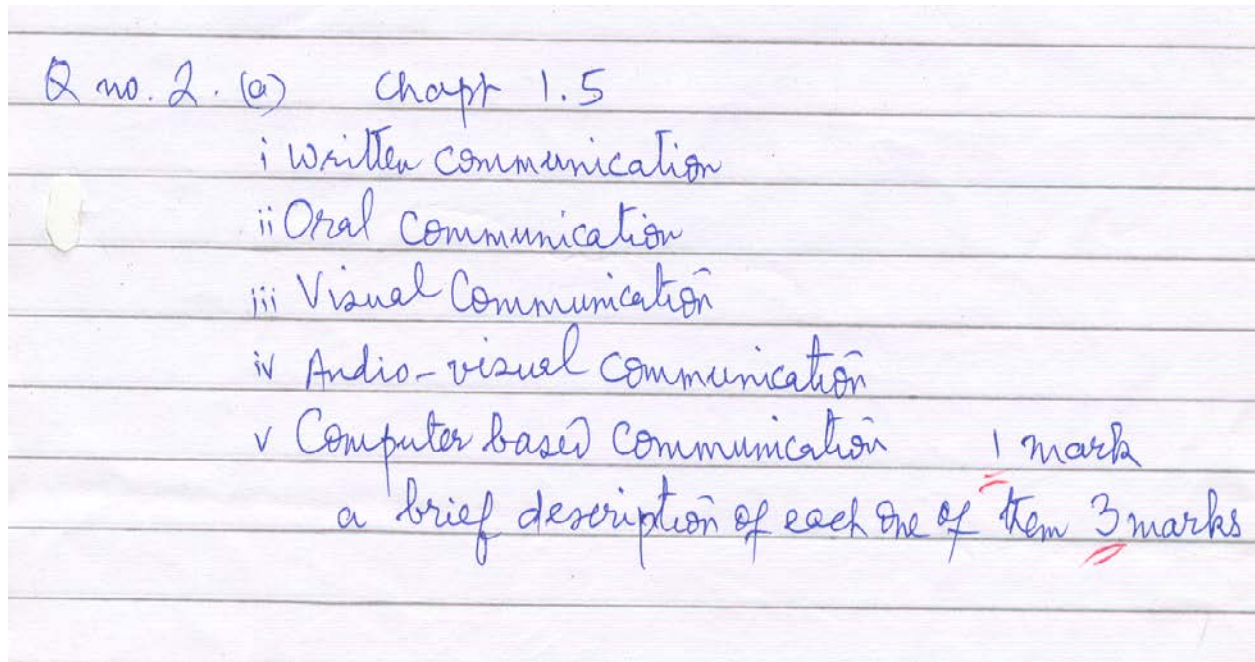 Q no. 2. (a) Chapt 1.5
i Written communication
ii Oral Communication
iii Visual Communication
iv Audio-visual communication
v Computer based Communication 1 mark
a brief description of each one of them 3 marks